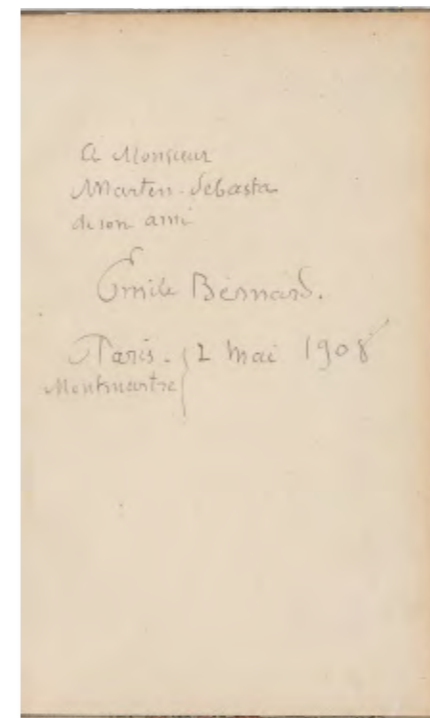 A Monsieur
Marten-Sebasta
de son ami
Émile Bernard.
Paris. { 2 mai 1908
Montmartre